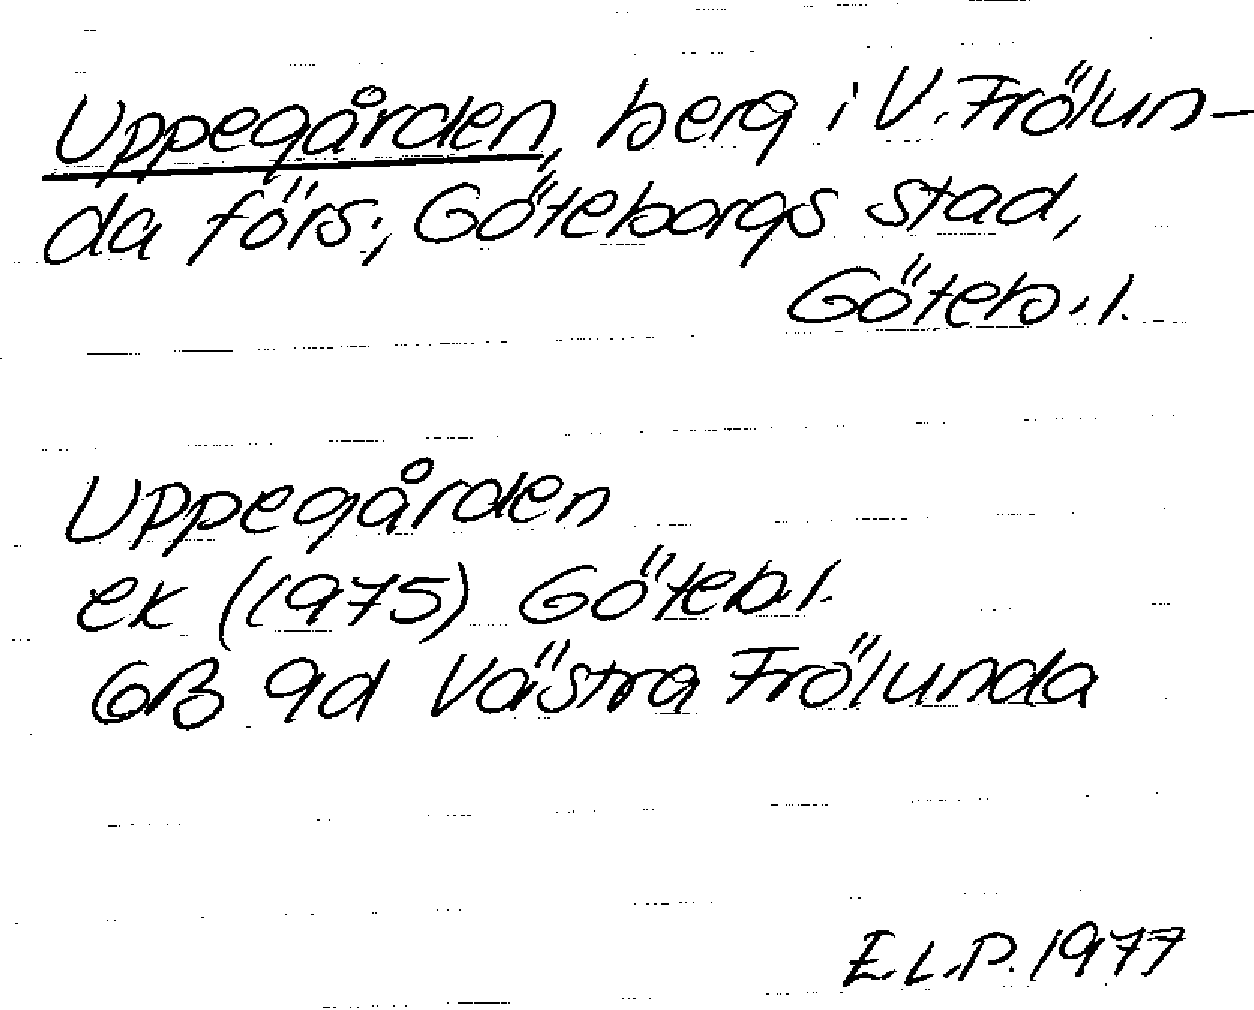 Uppegården, berg i V. Frölun-
da förs., Göteborgs stad,
Göteb. l.
Uppegården
ek (1975) Göteb. l.
6B 9d Västra Frölunda
E.L.P. 1977